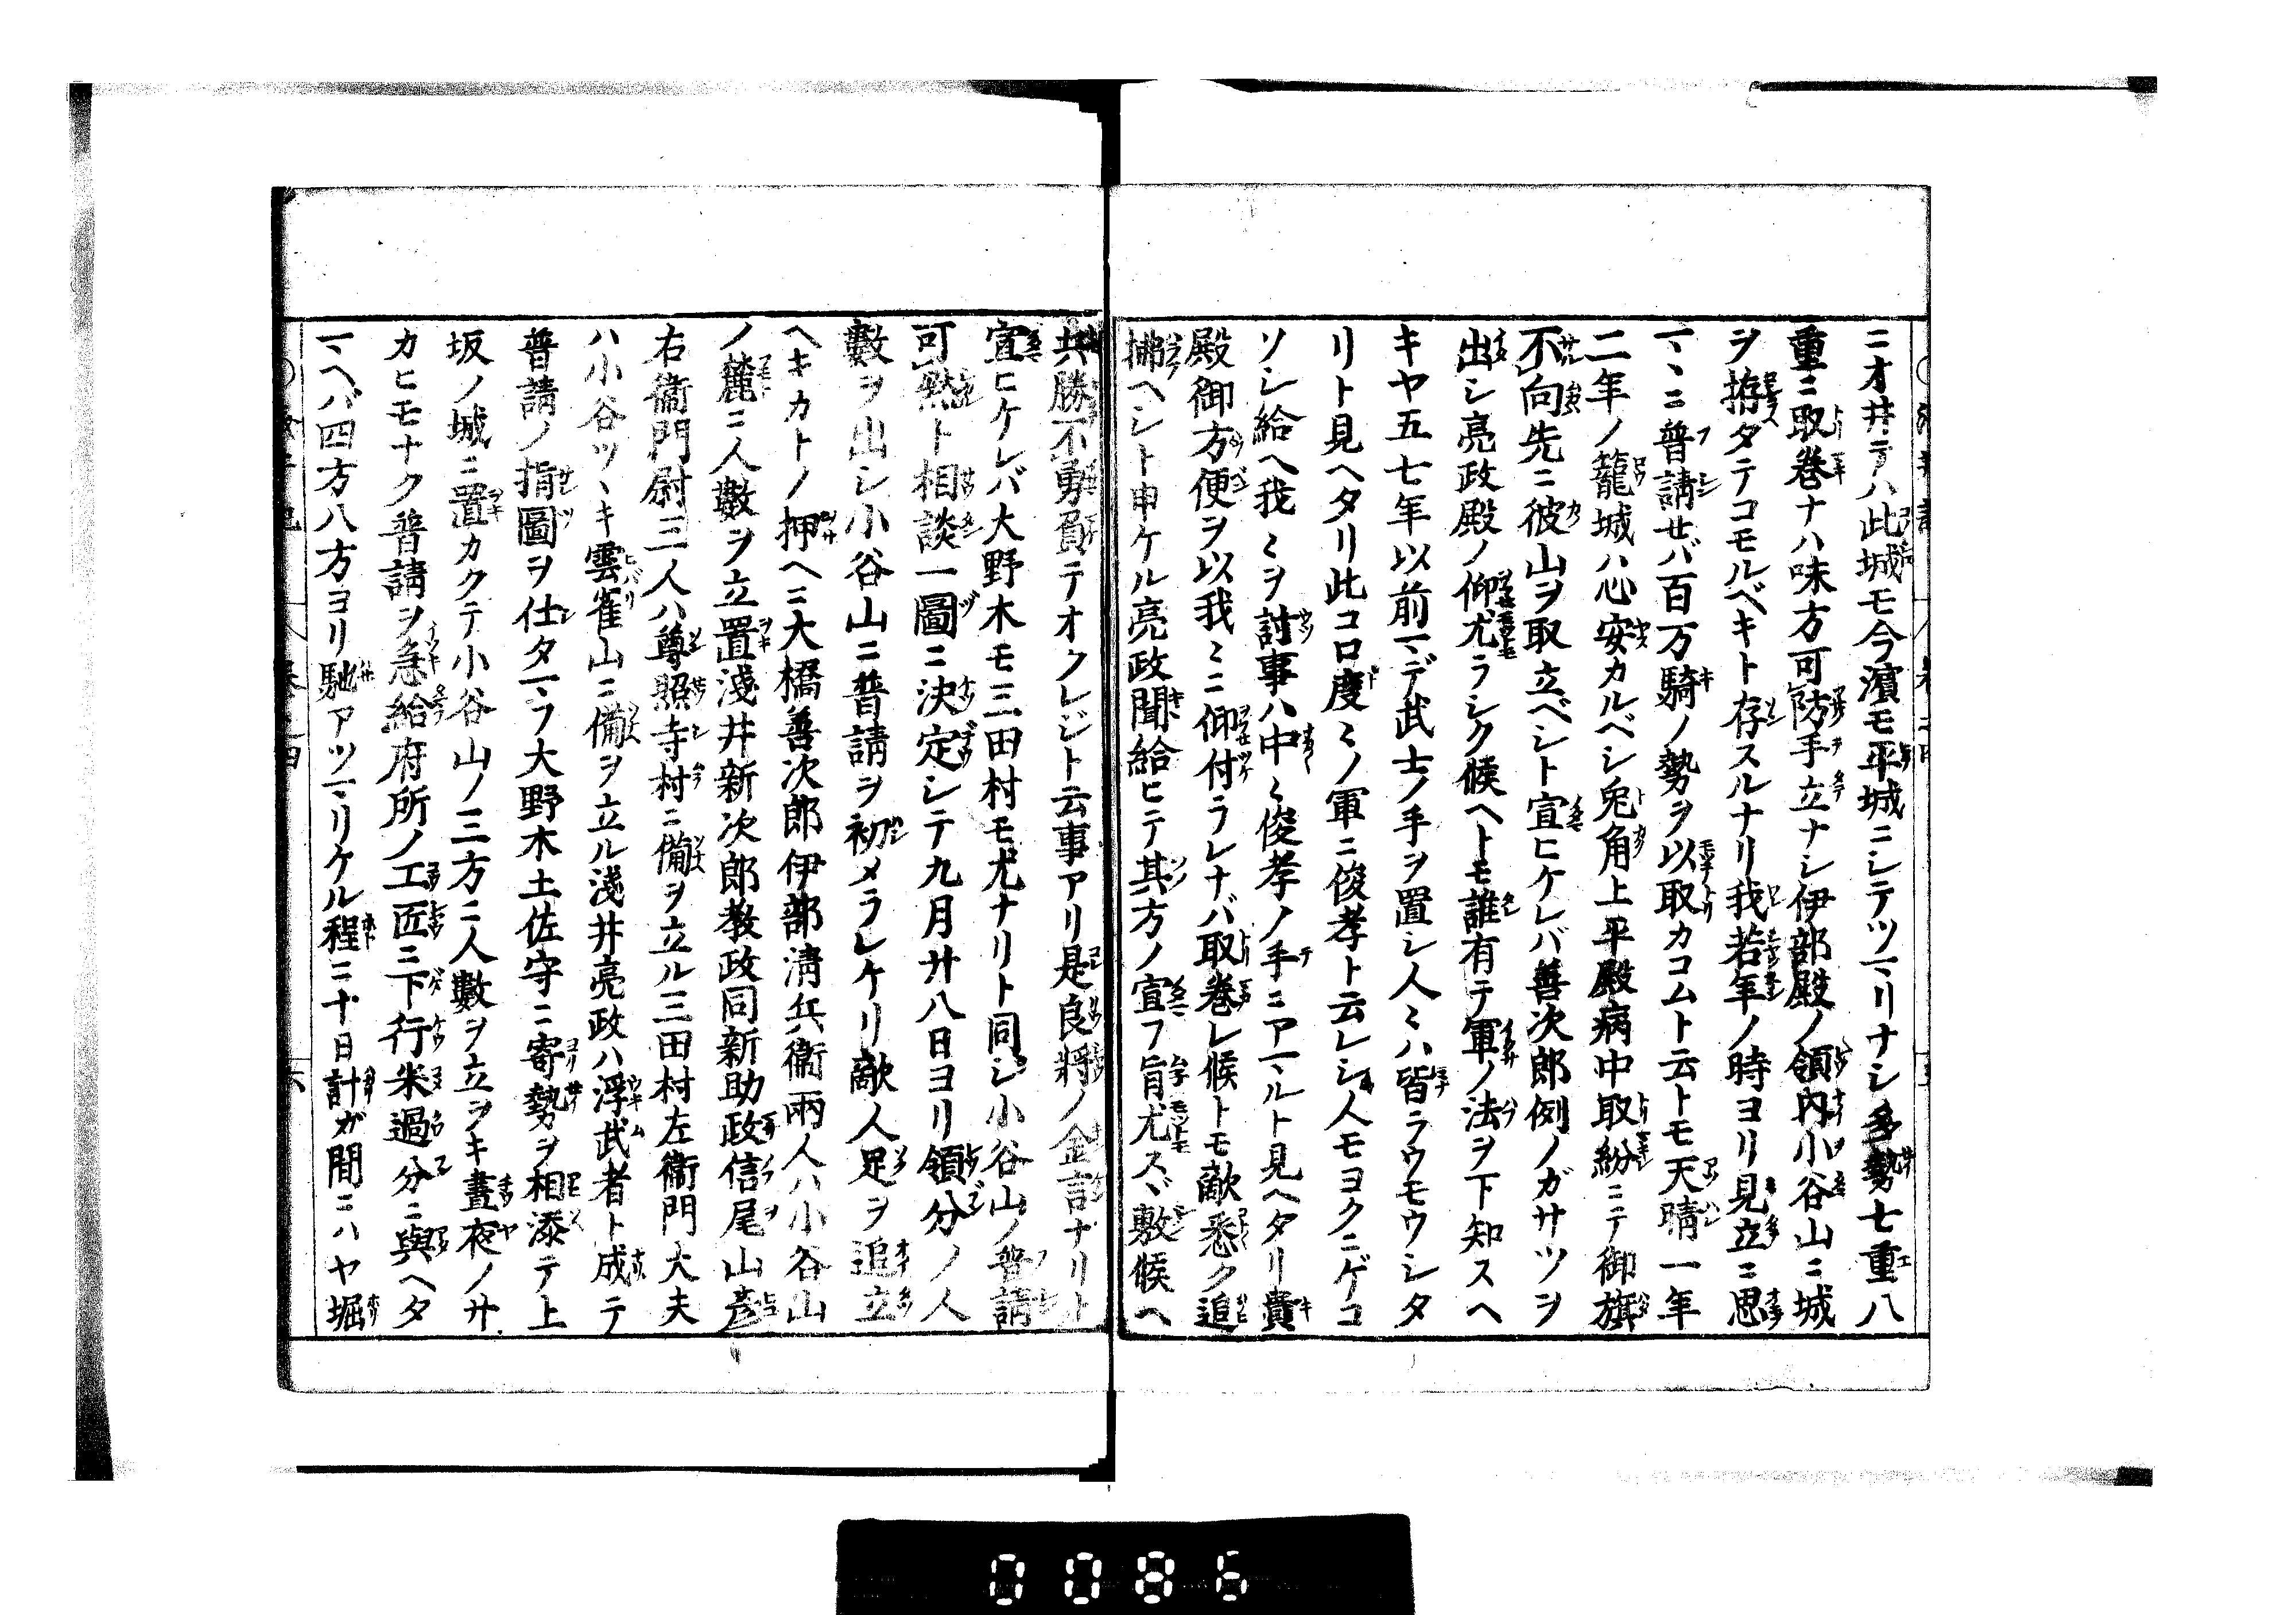 ニオ井テハ此城モ今濱モ平城ニシテツマリナシ多勢七重八
重ニ取巻ナハ味方可防手立ナシ伊部殿ノ領内小谷山ニ城
ヲ拵タテコモルベキト存スルナリ我若年ノ時ヨリ見立ニ思
マヽニ普請セバ百万騎ノ勢ヲ以取カコムト云トモ天晴一年
二年ノ籠城ハ心安カルベシ兎角上平殿病中取紛ニテ御旗
不向先ニ彼山ヲ取立ベシト宣ヒケレバ善次郎例ノガサツヲ
出シ亮政殿ノ仰尤ラシク候ヘトモ誰有テ軍ノ法ヲ下知スヘ
キヤ五七年以前マデ武士ノ手ヲ置シ人〻ハ皆ラウモウシタ
リト見ヘタリ此コロ度〻ノ軍ニ俊孝ト云レシ人モヨクニゲコ
ソシ給ヘ我〻ヲ討事ハ中〻俊孝ノ手ニアマルト見ヘタリ貴
殿御方便ヲ以我〻ニ仰付ラレナバ取巻レ候トモ敵悉ク追
拂ヘシト申ケル亮政聞給ヒテ其方ノ宣フ旨尤スヾ敷候ヘ
共勝不勇負テオクレジト云事アリ是良將ノ金言ナリト
宣ヒケレバ大野木モ三田村モ尤ナリト同シ小谷山ノ普請
可然ト相談一圖ニ決定シテ九月廿八日ヨリ領分ノ人
數ヲ出シ小谷山ニ普請ヲ初メラレケリ敵人足ヲ追立
ヘキカトノ押ヘニ大橋善次郎伊部清兵衞兩人ハ小谷山
ノ麓ニ人數ヲ立置淺井新次郎教政同新助政信尾山彦
右衞門尉三人ハ尊照寺村ニ備ヲ立ル三田村左衞門大夫
ハ小谷ツヽキ雲雀山ニ備ヲ立ル淺井亮政ハ浮武者ト成テ
普請ノ指圖ヲ仕タマフ大野木土佐守ニ寄勢ヲ相添テ上
坂ノ城ニ置カクテ小谷山ノ三方ニ人數ヲ立ヲキ晝夜ノサ
カヒモナク普請ヲ急給府所ノ工匠ニ下行米過分ニ與ヘタ
マヘバ四方八方ヨリ馳アツマリケル程ニ十日計ガ間ニハヤ堀
0086